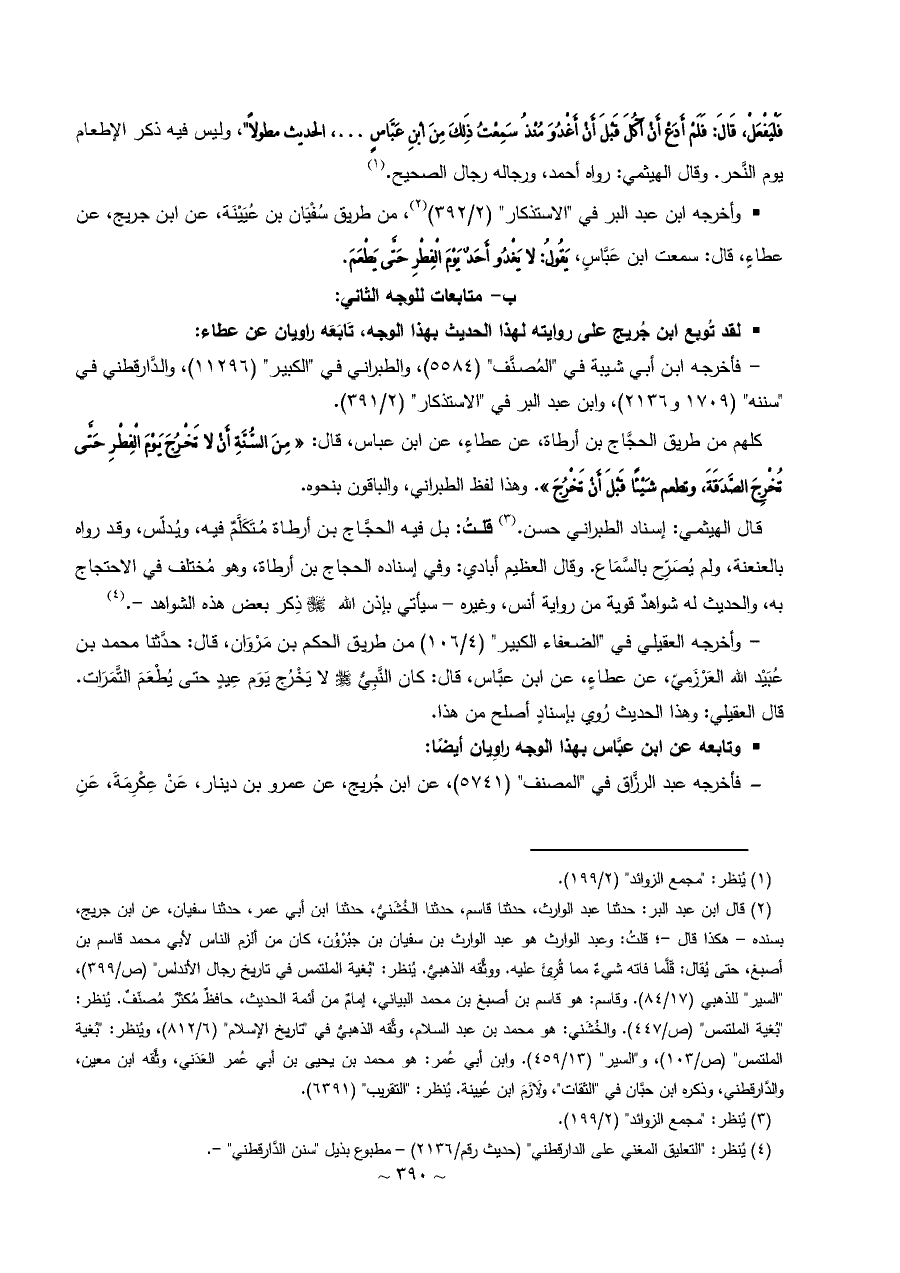 فَلْيَفْعَلْ، قَالَ: فَلَمْ أَدَعْ أَنْ آكُلَ قَبْلَ أَنْ أَغْدُوَ مُنْذُ سَمِعْتُ ذَلِكَ مِنَ ابْنِ عَبَّاسٍ ...، الحديث مطولاً"، وليس فيه ذكر الإطعام
يوم النَّحر. وقال الهيثمي: رواه أحمد، ورجاله رجال الصحيح.(١)
▪ وأخرجه ابن عبد البر في "الاستذكار" (٣٩٢/٢)(٢)، من طريق سُفْيَان بن عُيَيْنَة، عن ابن جريج، عن
عطاءٍ، قال: سمعت ابن عَبَّاسٍ، يَقُولُ: لا يَغْدُو أَحَدٌ يَوْمَ الْفِطْرِ حَتَّى يَطْعَمَ.
ب- متابعات للوجه الثاني:
▪ لقد تُوبع ابن جُريج على روايته لهذا الحديث بهذا الوجه، تَابَعَه راويان عن عطاء:
- فأخرجه ابن أبي شيبة في "المُصنَّف" (٥٥٨٤)، والطبراني في "الكبير" (١١٢٩٦)، والدَّارقطني في
"سننه" (١٧٠٩ و٢١٣٦)، وابن عبد البر في "الاستذكار" (٣٩١/٢).
كلهم من طريق الحجَّاج بن أرطاة، عن عطاءٍ، عن ابن عباس، قال: « مِنَ السُّنَّةِ أَنْ لا تَخْرُجَ يَوْمَ الْفِطْرِ حَتَّى
تُخْرِجَ الصَّدَقَةَ، وتطعم شَيْئًا قَبْلَ أَنْ تَخْرُجَ ». وهذا لفظ الطبراني، والباقون بنحوه.
قال الهيثمي: إسناد الطبراني حسن.(٣) قلتُ: بل فيه الحجَّاج بن أرطاة مُتَكَلَّمٌ فيه، ويُدلّس، وقد رواه
بالعنعنة، ولم يُصَرِّح بالسَّمَاع. وقال العظيم أبادي: وفي إسناده الحجاج بن أرطاة، وهو مُختلف في الاحتجاج
به، والحديث له شواهدٌ قوية من رواية أنس، وغيره – سيأتي بإذن الله ﷻ ذِكر بعض هذه الشواهد -.(٤)
- وأخرجه العقيلي في "الضعفاء الكبير" (١٠٦/٤) من طريق الحكم بن مَرْوَان، قال: حدَّثنا محمد بن
عُبَيْد الله العَرْزَميّ، عن عطاءٍ، عن ابن عبَّاس، قال: كان النَّبِيُّ ﷺ لا يَخْرُج يَوْم عِيدٍ حتى يُطْعَمَ التَّمَرَات.
قال العقيلي: وهذا الحديث رُوي بإسنادٍ أصلح من هذا.
▪ وتابعه عن ابن عبَّاس بهذا الوجه راوِيان أيضًا:
- فأخرجه عبد الرزَّاق في "المصنف" (٥٧٤١)، عن ابن جُريج، عن عمرو بن دينار، عَنْ عِكْرِمَةَ، عَنِ
(١) يُنظر: "مجمع الزوائد" (١٩٩/٢).
(٢) قال ابن عبد البر: حدثنا عبد الوارث، حدثنا قاسم، حدثنا الخُشَنيُّ، حدثنا ابن أبي عمر، حدثنا سفيان، عن ابن جريج،
بسنده – هكذا قال –؛ قلتُ: وعبد الوارث هو عبد الوارث بن سفيان بن جبُرْوُن، كان من ألزم الناس لأبي محمد قاسم بن
أصبغ، حتى يُقال: قَلَّما فاته شيءٌ مما قُرِئَ عليه. ووثَّقه الذهبيُّ. يُنظر: "بُغية الملتمس في تاريخ رجال الأندلس" (ص/٣٩٩)،
"السير" للذهبي (٨٤/١٧). وقاسم: هو قاسم بن أصبغ بن محمد البياني، إمامٌ من أئمة الحديث، حافظٌ مُكثرٌ مُصنّفٌ. يُنظر:
"بُغية الملتمس" (ص/٤٤٧). والخُشَني: هو محمد بن عبد السلام، وثَّقه الذهبيُّ في "تاريخ الإسلام" (٨١٢/٦)، ويُنظر: "بُغية
الملتمس" (ص/١٠٣)، و"السير" (٤٥٩/١٣). وابن أبي عُمر: هو محمد بن يحيى بن أبي عُمر العَدَني، وثَّقه ابن معين،
والدَّارقطني، وذكره ابن حبَّان في "الثقات"، ولَازَمَ ابن عُيينة. يُنظر: "التقريب" (٦٣٩١).
(٣) يُنظر: "مجمع الزوائد" (١٩٩/٢).
(٤) يُنظر: "التعليق المغني على الدارقطني" (حديث رقم/٢١٣٦) – مطبوع بذيل "سنن الدَّارقطني" -.
~ ٣٩٠ ~